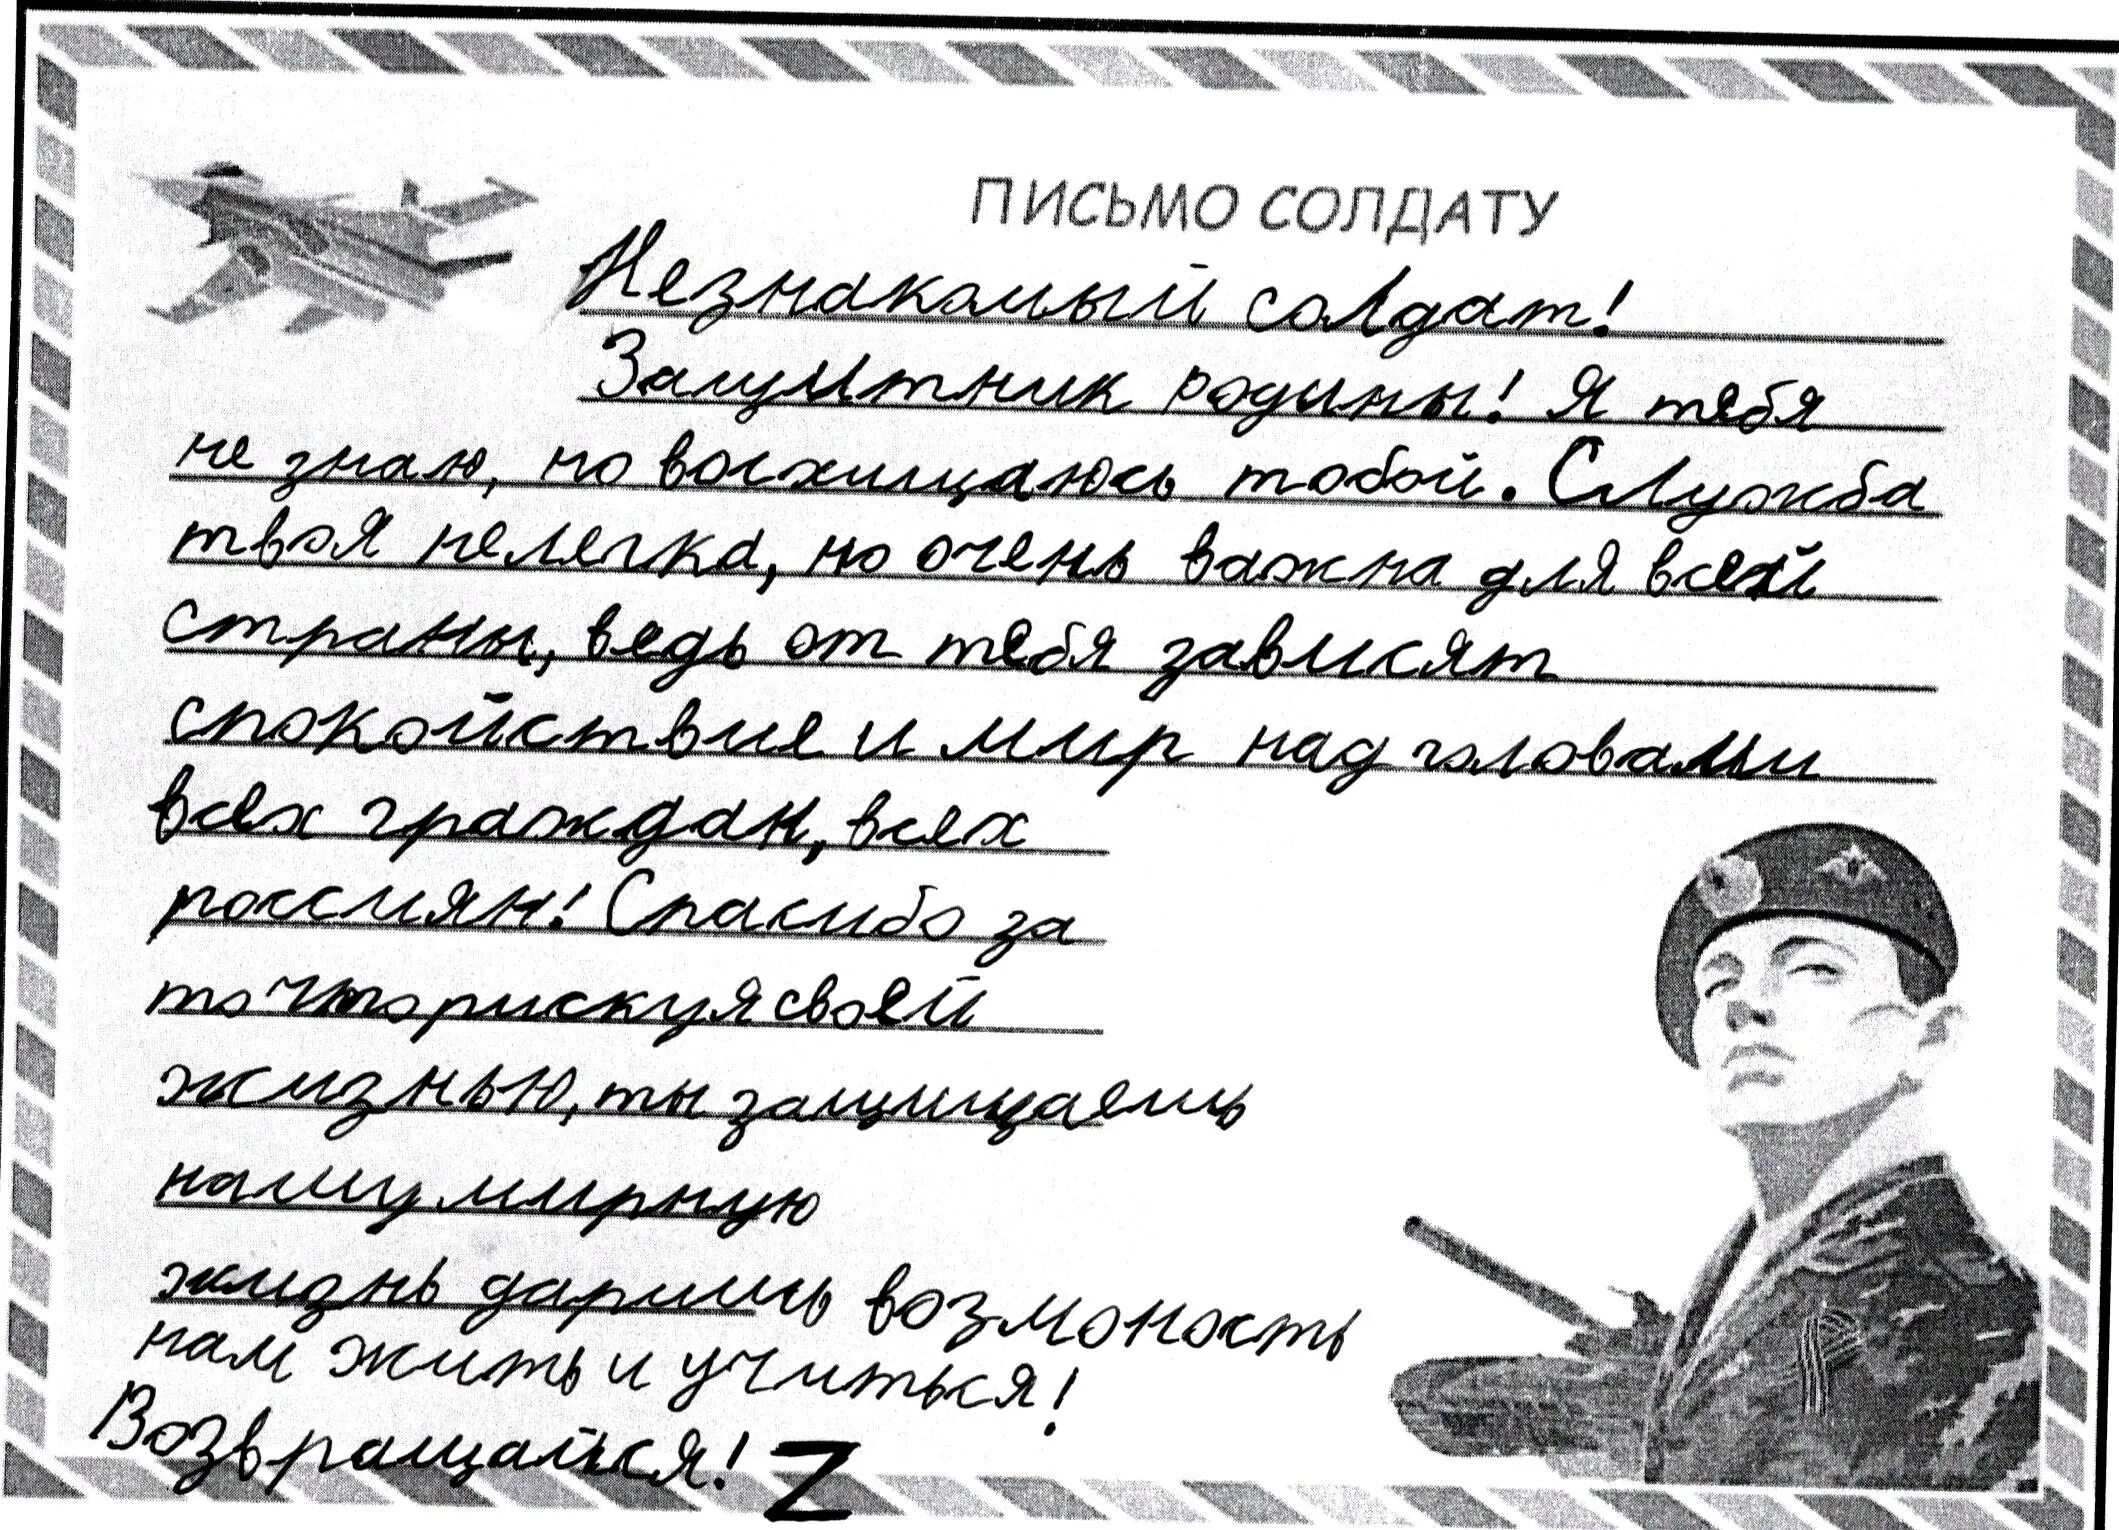 ПИСЬМО СОЛДАТУ
Незнакомый солдат!
Защитник родины! Я тебя
не знаю, но восхищаюсь тобой. Служба
твоя нелегка, но очень важна для всей
страны, ведь от тебя зависят
спокойствие и мир над головами
всех граждан, всех
россиян! Спасибо за
то что рискуя своей
жизнью, ты защищаешь
нашу мирную
жизнь даришь возмоность
нам жить и учиться!
Возвращайся! Z